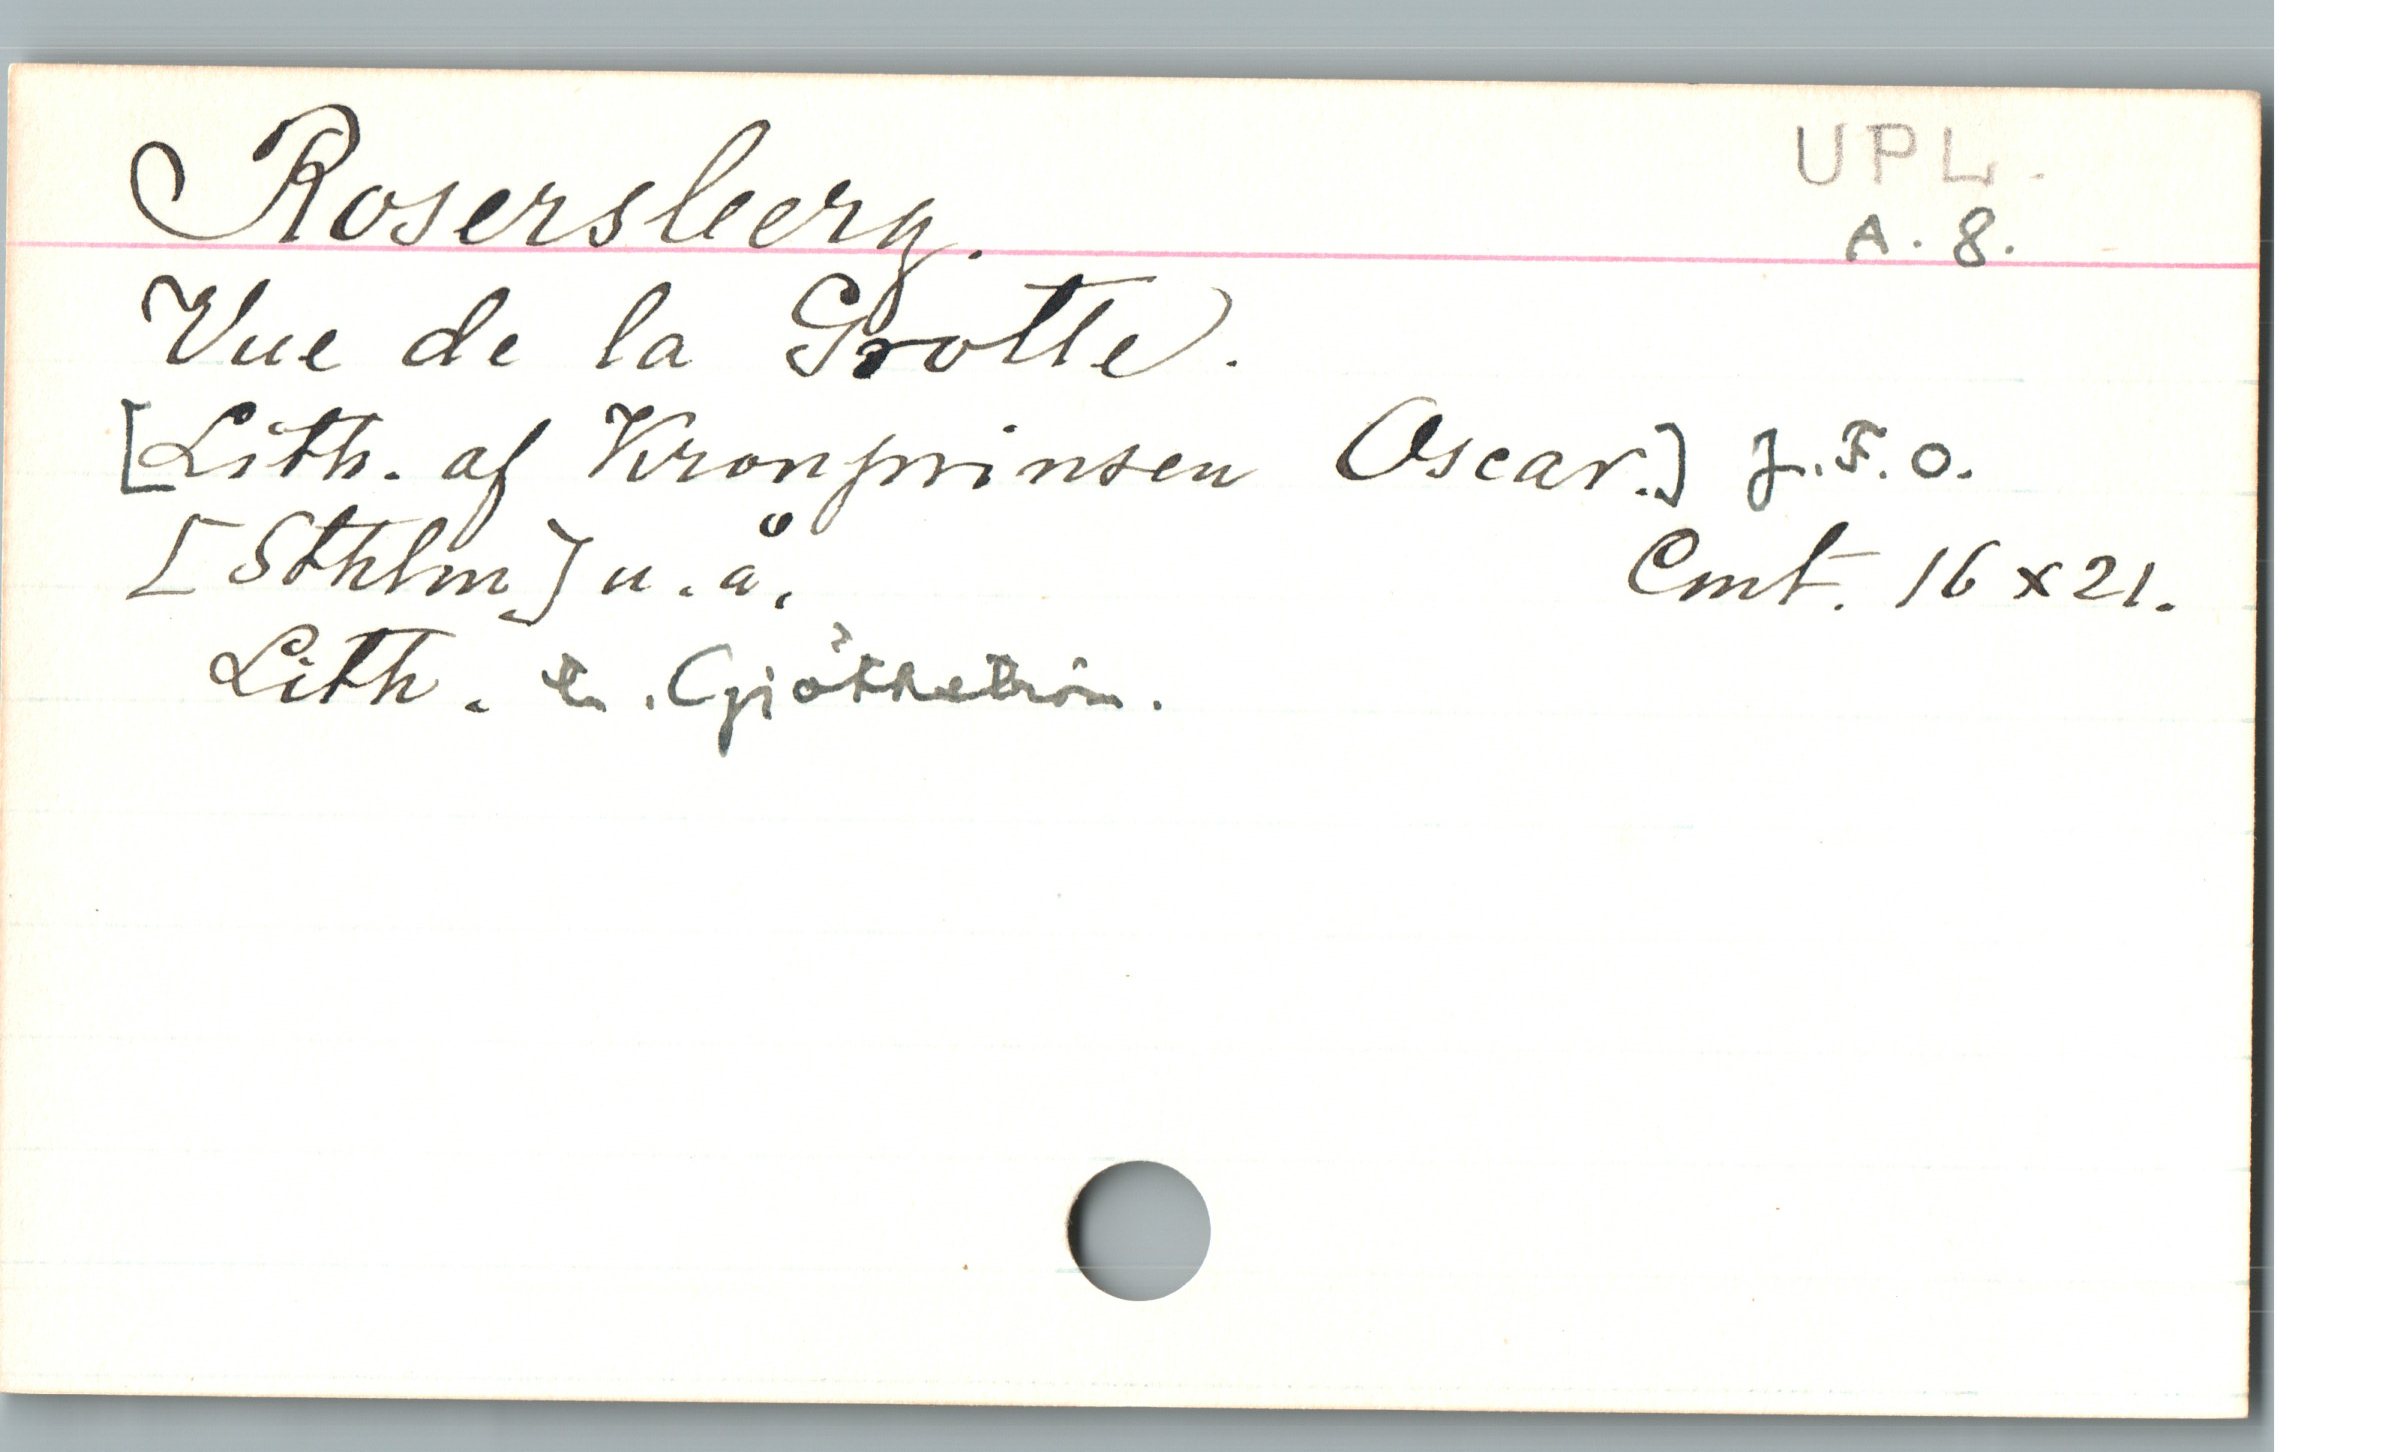 Rosersberg.
UPL.
A. 8.
Vue de la Grotte.
[Lith. af Kronprinsen Oscar.] J. F. O.
[Sthlm.] u. å.
Cmt. 16 x 21.
Lith.